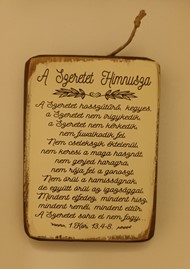 A Szeretet Himnusza
A Szeretet hosszútűrő, kegyes,
a Szeretet nem irigykedik,
a Szeretet nem kérkedik,
nem fuvalkodik fel.
Nem cselekszik éktelenül,
nem keresi a maga hasznát,
nem gerjed haragra,
nem rója fel a gonoszt.
Nem örül a hamisságnak,
de együtt örül az igazsággal.
Mindent elfedez, mindent hisz,
mindent remél, mindent eltűr.
A Szeretet soha el nem fogy.
1.Kor. 13,4-8.